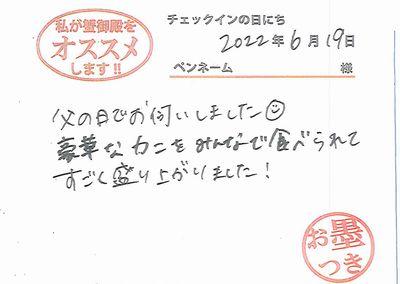 私が蟹御殿を
オススメ
します!!
チェックインの日にち
2022年6月19日
ペンネーム 様
父の日でお伺いしました☺
豪華なカニをみんなで食べられて
すごく盛り上がりました!
お墨
つき